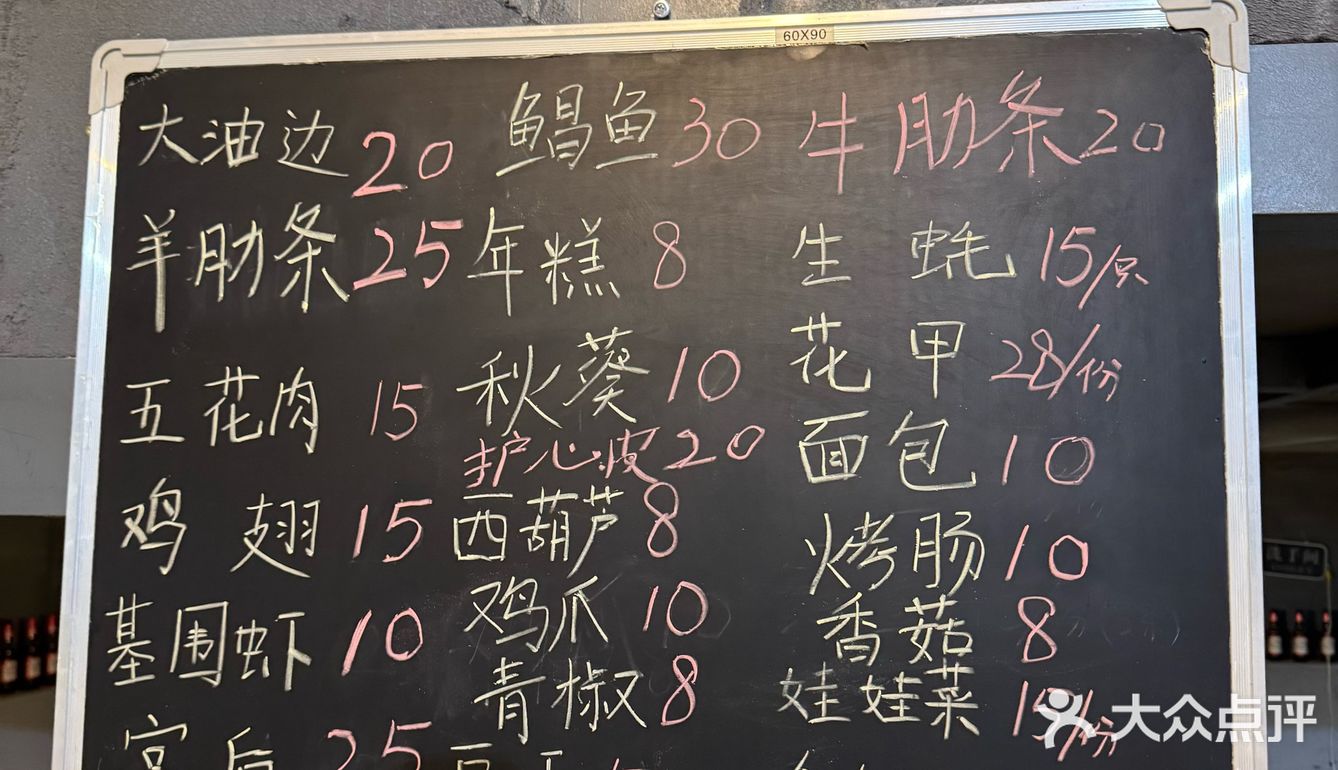 60X90
大油边 20 鲳鱼 30 牛肋条 20
羊肋条 25 年糕 8 生蚝 15/只
五花肉 15 秋葵 10 花甲 28/份
护心皮 20 面包 10
鸡翅 15 西葫芦 8 烤肠 10
基围虾 10 鸡爪 10 香菇 8
青椒 8 娃娃菜 /份
25
大众点评